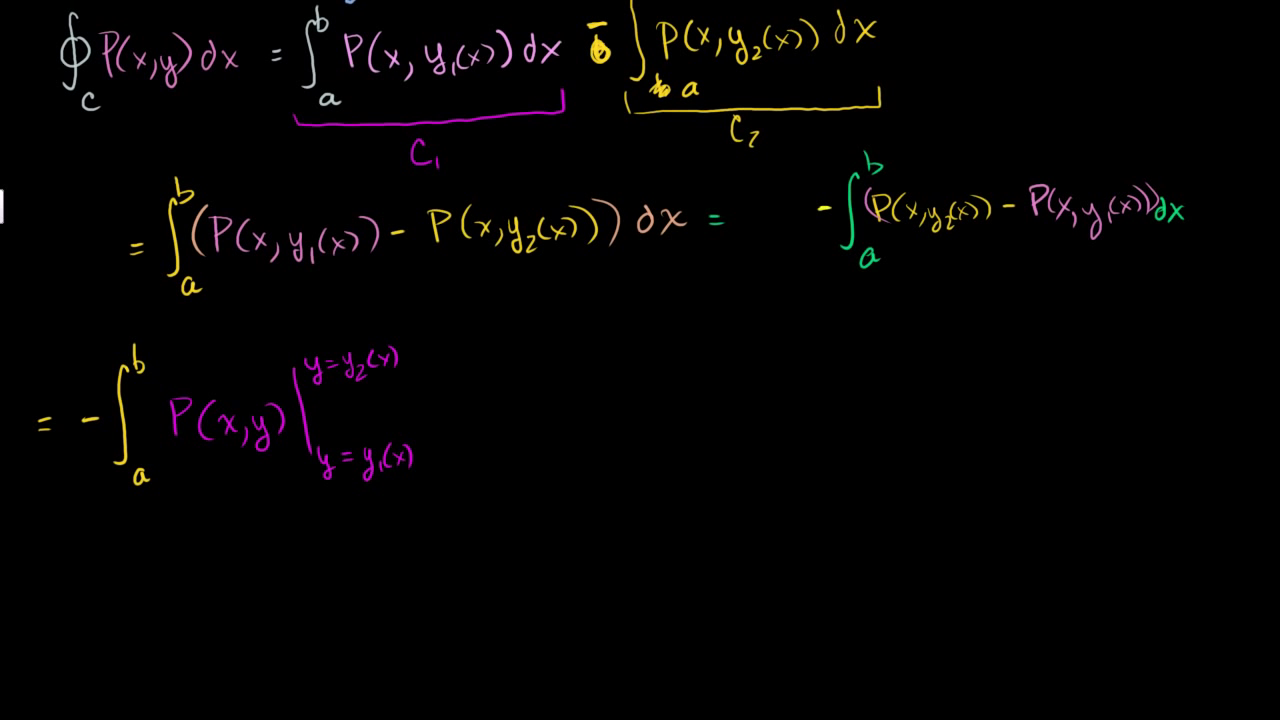 ∮_C P(x,y) dx = ∫_a^b P(x, y₁(x)) dx - ∫_a P(x, y₂(x)) dx
C₁ C₂
= ∫_a^b (P(x, y₁(x)) - P(x, y₂(x))) dx = - ∫_a^b (P(x, y₂(x)) - P(x, y₁(x))) dx
= - ∫_a^b P(x,y) |_{y = y₁(x)}^{y = y₂(x)}